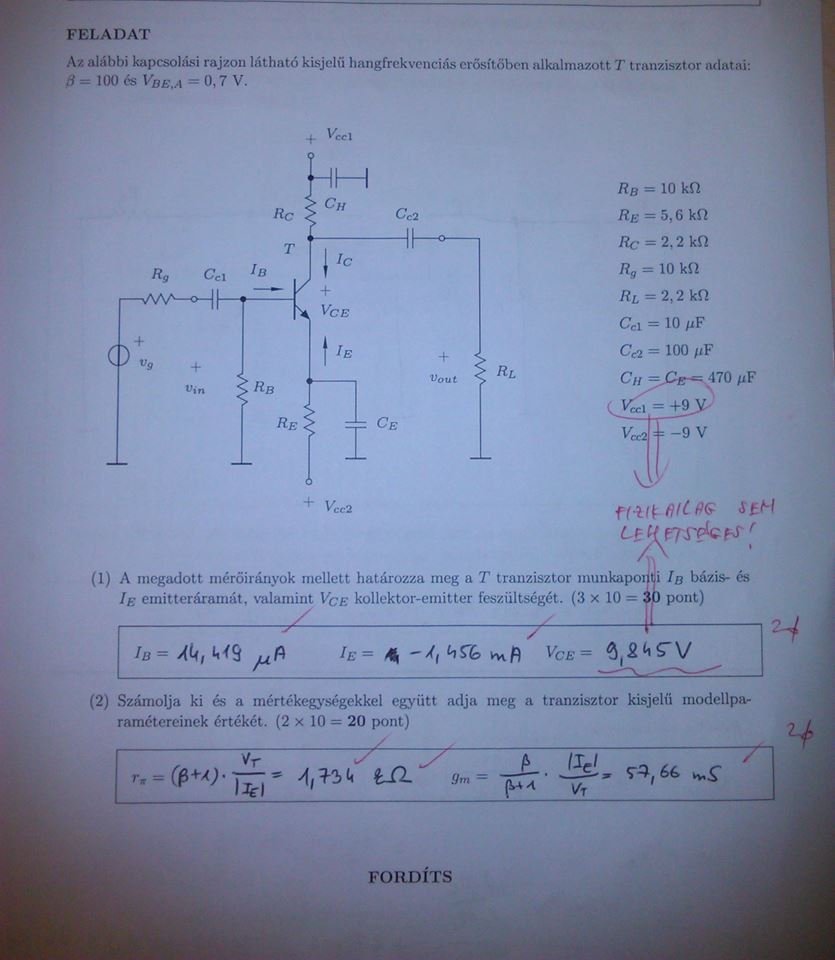 FELADAT
Az alábbi kapcsolási rajzon látható kisjelű hangfrekvenciás erősítőben alkalmazott T tranzisztor adatai:
β = 100 és V_BE,A = 0,7 V.
+ V_cc1
C_H
R_C
C_c2
T
I_C
R_g
C_c1
I_B
+
V_CE
+
v_g
+
v_in
R_B
I_E
+
v_out
R_L
R_E
C_E
+ V_cc2
R_B = 10 kΩ
R_E = 5,6 kΩ
R_C = 2,2 kΩ
R_g = 10 kΩ
R_L = 2,2 kΩ
C_c1 = 10 μF
C_c2 = 100 μF
C_H = C_E = 470 μF
V_cc1 = +9 V
V_cc2 = −9 V
FIZIKAILAG SEM
LEHETSÉGES!
(1) A megadott mérőirányok mellett határozza meg a T tranzisztor munkaponti I_B bázis- és
I_E emitteráramát, valamint V_CE kollektor-emitter feszültségét. (3 × 10 = 30 pont)
I_B = 14,419 μA I_E = -1,456 mA V_CE = 9,845 V
(2) Számolja ki és a mértékegységekkel együtt adja meg a tranzisztor kisjelű modellpa-
ramétereinek értékét. (2 × 10 = 20 pont)
r_π = (β+1) · V_T / |I_E| = 1,734 kΩ g_m = β / β+1 · |I_E| / V_T = 57,66 mS
FORDÍTS